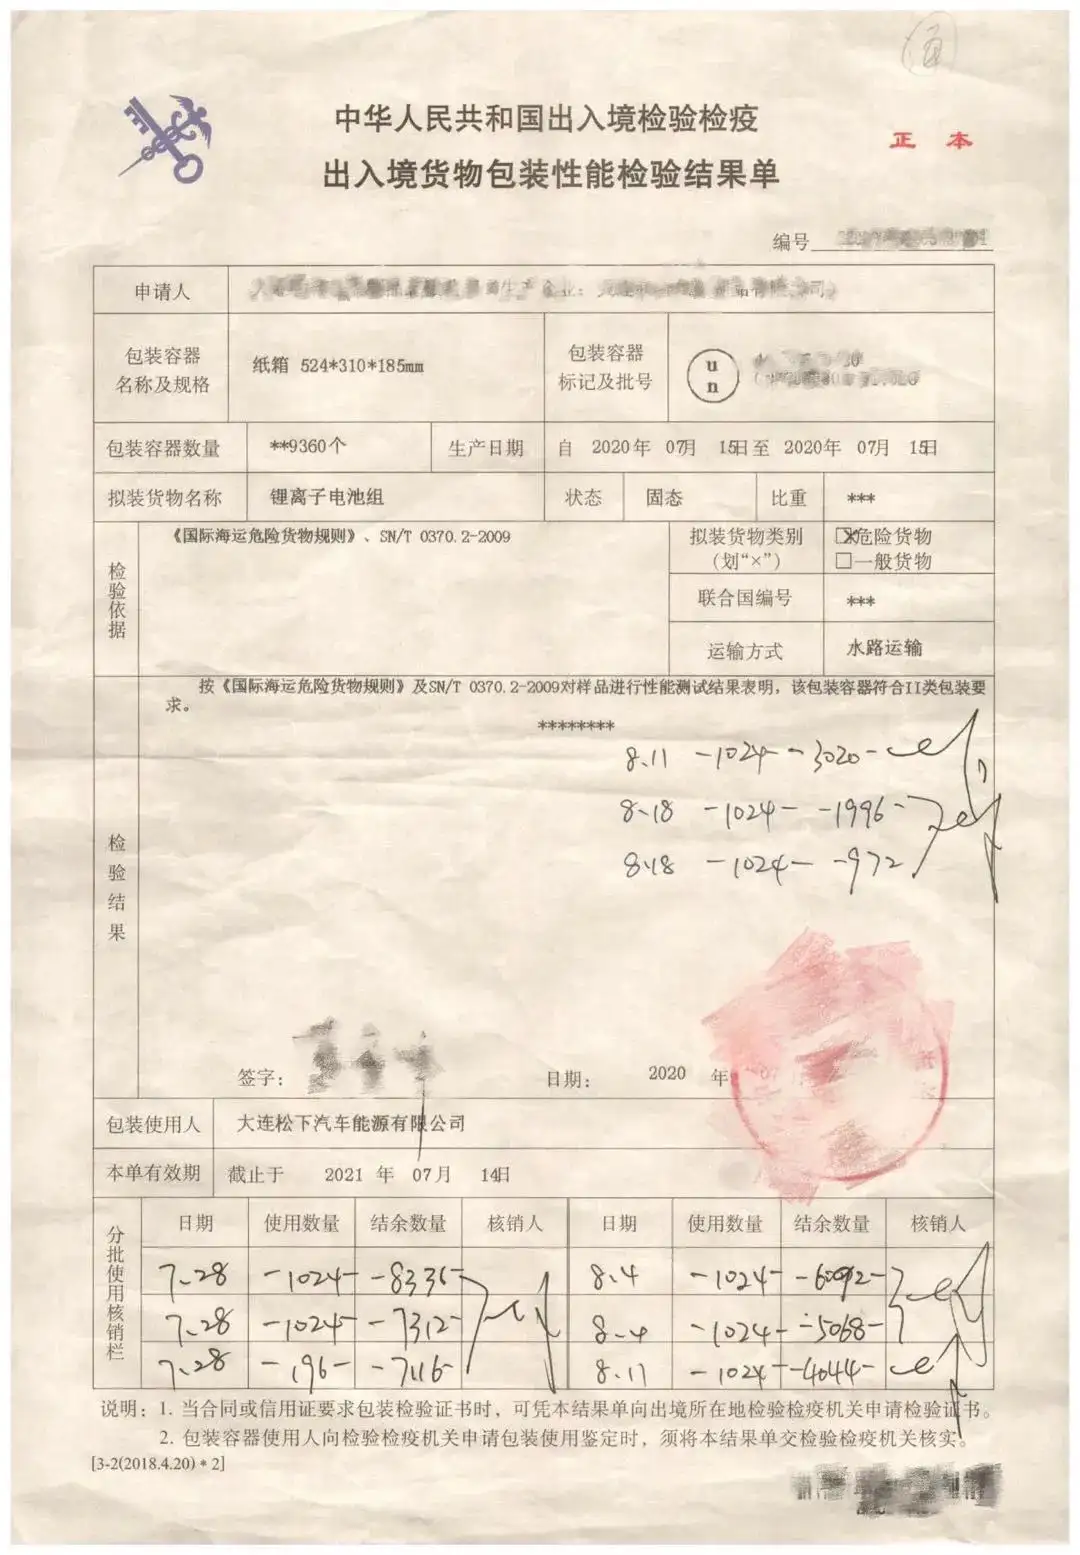 中华人民共和国出入境检验检疫
正 本
出入境货物包装性能检验结果单
编号
申请人
包装容器
名称及规格
纸箱 524*310*185mm
包装容器
标记及批号
u
n
包装容器数量 **9360个 生产日期 自 2020年 07月 15日至 2020年 07月 15日
拟装货物名称 锂离子电池组 状态 固态 比重 ***
检验依据
《国际海运危险货物规则》、SN/T 0370.2-2009
拟装货物类别
(划“×”)
☒危险货物
□一般货物
联合国编号 ***
运输方式 水路运输
检验结果
按《国际海运危险货物规则》及SN/T 0370.2-2009对样品进行性能测试结果表明，该包装容器符合II类包装要
求。
********
8.11 -1024- -3020-
8.18 -1024- -1996-
8.18 -1024- -972
签字： 日期： 2020 年
包装使用人 大连松下汽车能源有限公司
本单有效期 截止于 2021 年 07月 14日
分批使用核销栏
日期 使用数量 结余数量 核销人 日期 使用数量 结余数量 核销人
7.28 -1024- -8336- 8.4 -1024- -6092-
7.28 -1024- -7312- 8.4 -1024- -5068-
7.28 -196- -7116- 8.11 -1024- -4044-
说明：1. 当合同或信用证要求包装检验证书时，可凭本结果单向出境所在地检验检疫机关申请检验证书。
2. 包装容器使用人向检验检疫机关申请包装使用鉴定时，须将本结果单交检验检疫机关核实。
[3-2(2018.4.20)*2]